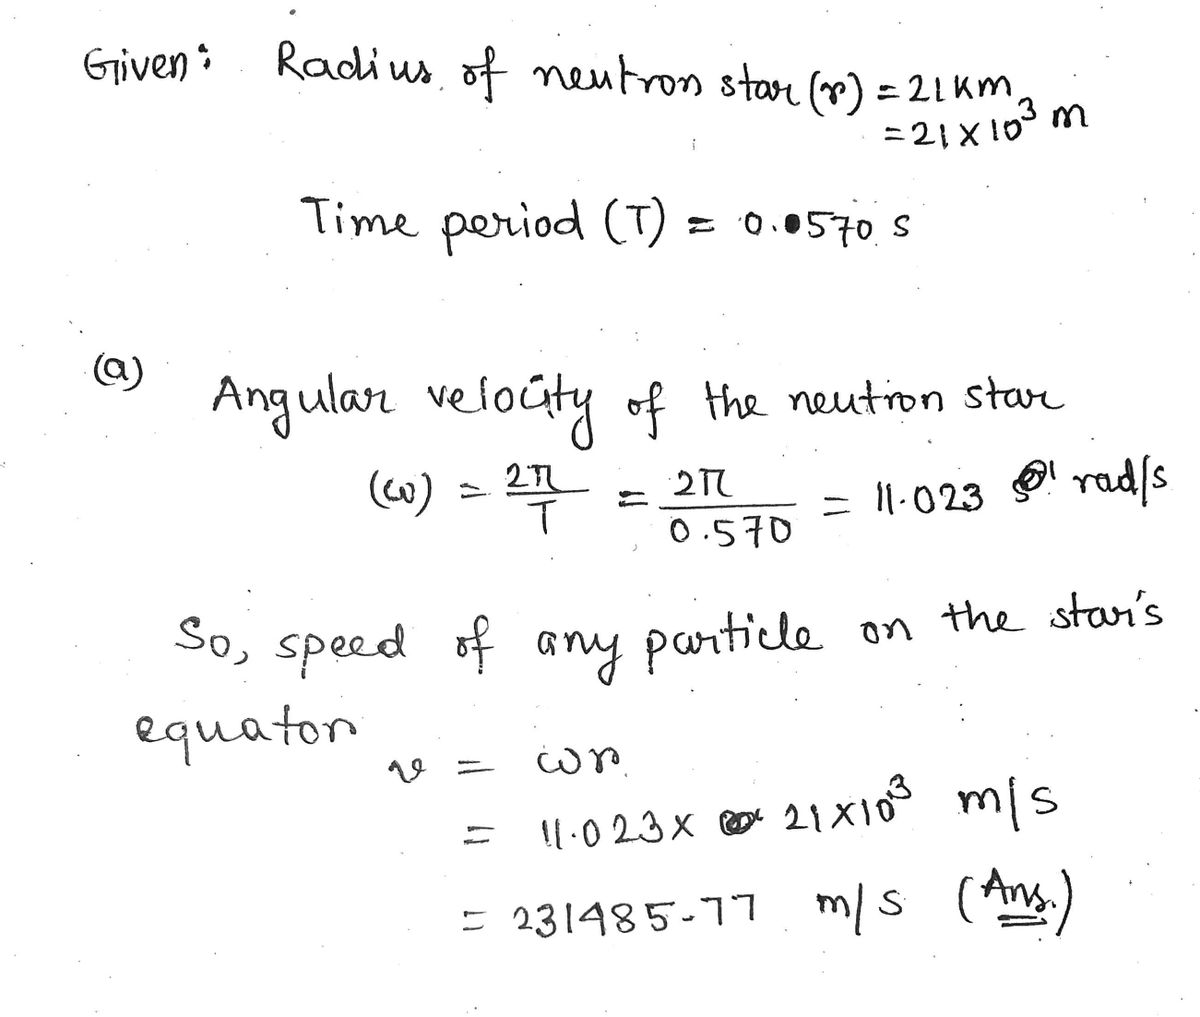 Given: Radius of neutron star (r) = 21 km
= 21 × 10³ m
Time period (T) = 0.0570 s
(a)
Angular velocity of the neutron star
(ω) = 2π/T = 2π/0.570 = 11.023 rad/s
So, speed of any particle on the star's
equator
v = ωr
= 11.023 × 21×10³ m/s
= 231485.77 m/s (Ans.)